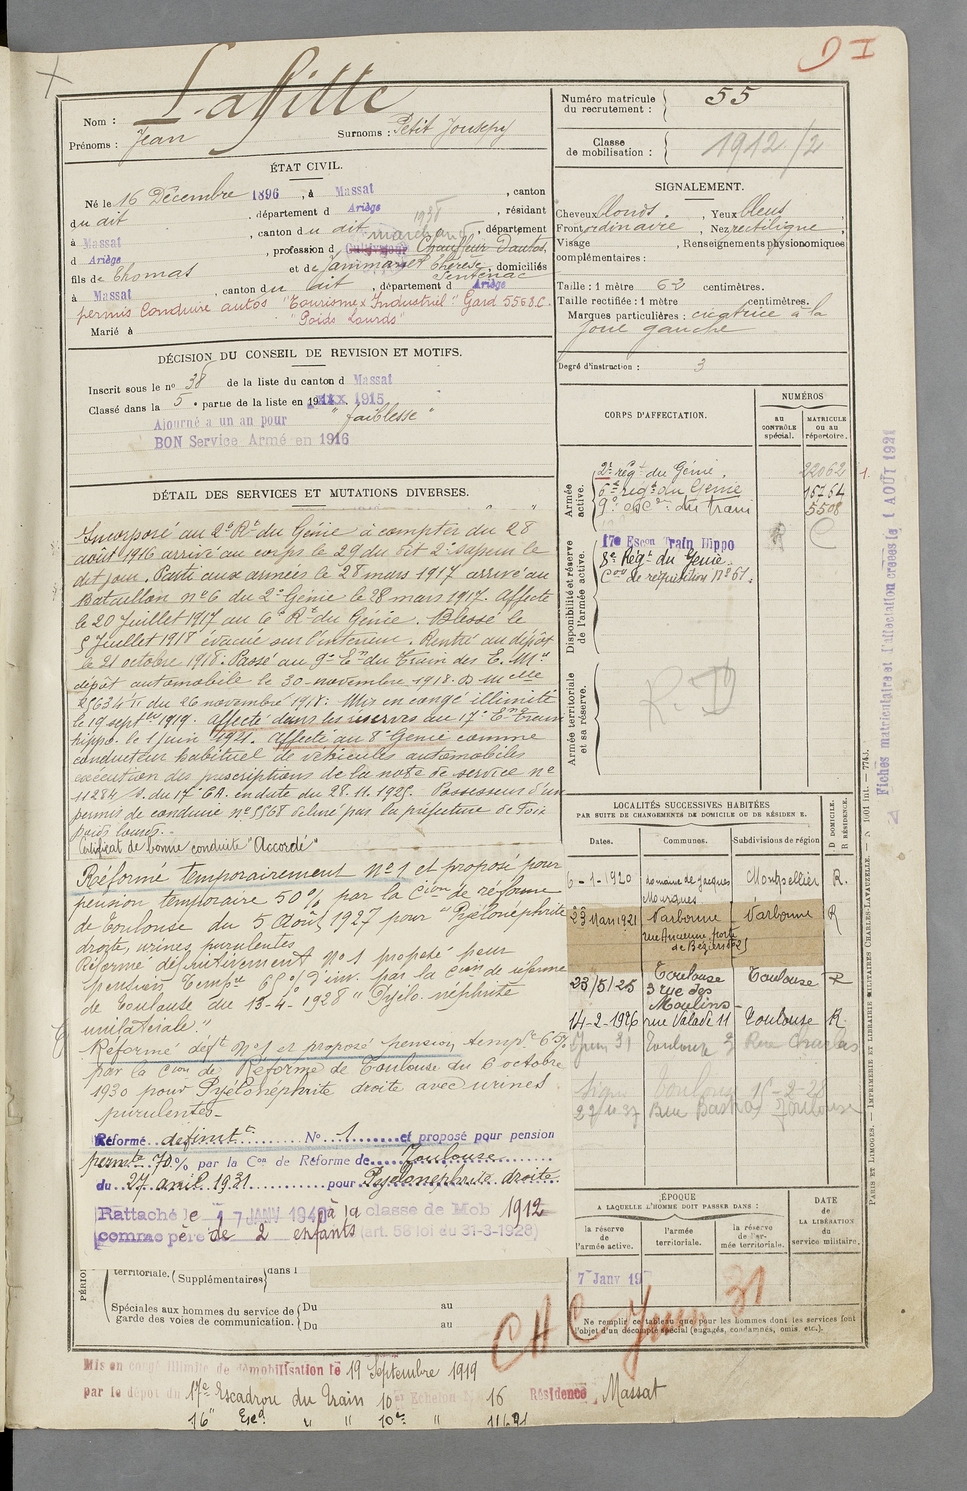 Nom : Lafitte
Prénoms : Jean Surnoms : Petit Jousepy
ÉTAT CIVIL.
Né le 16 Décembre 1896, à Massat, canton
du dit, département d Ariège, résidant
à Massat, canton du dit, département
d Ariège, profession d Cultivateur marchand 1938 Chauffeur d'autos,
fils de Thomas et de Jammaret Thérèse, domiciliés
Sentenac
à Massat, canton du dit, département d Ariège
permis Conduire autos "Tourisme & Industriel" Gard 5568.C.
"Poids Lourds"
Marié à
DÉCISION DU CONSEIL DE REVISION ET MOTIFS.
Inscrit sous le n° 38 de la liste du canton d Massat
Classé dans la 5e partie de la liste en 1915.
Ajourné a un an pour "faiblesse"
BON Service Armé en 1916
DÉTAIL DES SERVICES ET MUTATIONS DIVERSES.
Incorporé au 2e Rt du Génie à compter du 28
août 1916 arrivé au corps le 29 du dit 2e sapeur le
dit jour. Parti aux armées le 28 mars 1917 arrivé au
Bataillon n°6 du 2e Génie le 28 mars 1917. Affecté
le 20 Juillet 1917 au 6e Rt du Génie. Blessé le
5 Juillet 1918 évacué sur l'intérieur. Rentré au dépôt
le 21 octobre 1918. Passé au 9e En du Train des E. Mes
dépôt automobile le 30 novembre 1918. D melle
25634 II du 26 novembre 1918. Mis en congé illimité
le 19 septbre 1919. Affecté dans les réserves au 17e En Train
hippo. le 1 juin 1921. Affecté au 8e Génie comme
conducteur habituel de véhicules automobiles
exécution des prescriptions de la note de service n°
11284 /1. du 17e CA. en date du 28.11.1925. Possesseur d'un
permis de conduire n° 5568 délivré par la préfecture de Foix
poids lourds.
Certificat de bonne conduite "Accordé"
Réformé temporairement N°1 et proposé pour
pension temporaire 50% par la Cion de réforme
de Toulouse du 5 Août 1927 pour "Pyélonéphrite
droite, urines purulentes
Réformé définitivement N°1 proposé pour
pension Tempre 65% d'inv. par la Cion de réforme
de Toulouse du 13-4-1928 "Pyélo-néphrite
unilatérale."
Réformé deft N°1 et proposé pension tempre 65%
par la Cion de Réforme de Toulouse du 6 octobre
1930 pour Pyélonéphrite droite avec urines
purulentes-
Réformé définitt N° 1 et proposé pour pension
permte 70% par la Con de Réforme de Toulouse
du 27 avril 1931 pour Pyélonéphrite droite
Rattaché le 17 JANV 1940 à la classe de Mob 1912
comme père de 2 enfants (art. 58 loi du 31-3-1928)
territoriale. (Supplémentaires) dans l
Spéciales aux hommes du service de garde des voies de communication. { Du au
Du au
Mis en congé illimité de démobilisation le 19 Septembre 1919
par le dépôt du 17e Escadron du Train 10e Echelon 16 Résidence Massat
16" Esc. " " 10e "
Numéro matricule du recrutement : 55
Classe de mobilisation : 1912/2
SIGNALEMENT.
Cheveux blonds, Yeux bleus,
Front ordinaire, Nez rectiligne,
Visage , Renseignements physionomiques
complémentaires :
Taille : 1 mètre 62 centimètres.
Taille rectifiée : 1 mètre centimètres.
Marques particulières : cicatrice à la
joue gauche
Degré d'instruction : 3
CORPS D'AFFECTATION.
NUMÉROS
au CONTRÔLE spécial.
MATRICULE ou au répertoire.
Armée active.
2e régt du Génie. 22062
6e régt du Génie 15754
9e Escon du train 5508
Disponibilité et réserve de l'armée active.
17e Escon Train Hippo
8e Régt du Génie.
Con de réquisition N° 61.
R C
Armée territoriale et sa réserve.
R.D
LOCALITÉS SUCCESSIVES HABITÉES
PAR SUITE DE CHANGEMENTS DE DOMICILE OU DE RÉSIDENCE.
Dates. Communes. Subdivisions de région
D DOMICILE. R RÉSIDENCE.
6-1-1920 Domaine de Jacques Montpellier R.
23 Mars 1921 Narbonne Narbonne R
rue Ancienne porte
de Béziers
23/5/25 Toulouse Toulouse R
3 rue des
Moulins-
14-2-1926 rue Valade 11 Toulouse R.
Juin 31 Toulouse
Toulouse 15-2-28
27/10 37 Toulouse
ÉPOQUE
A LAQUELLE L'HOMME DOIT PASSER DANS :
la réserve de l'armée active.
l'armée territoriale.
la réserve de l'armée territoriale.
DATE de LA LIBÉRATION du service militaire.
7 Janv 19
Ne remplir ce tableau que pour les hommes dont les services font
l'objet d'un décompte spécial (engagés, condamnés, omis, etc.).
CAC Juin 31
PARIS ET LIMOGES. — IMPRIMERIE ET LIBRAIRIE MILITAIRES CHARLES-LAVAUZELLE.
AOUT 1921